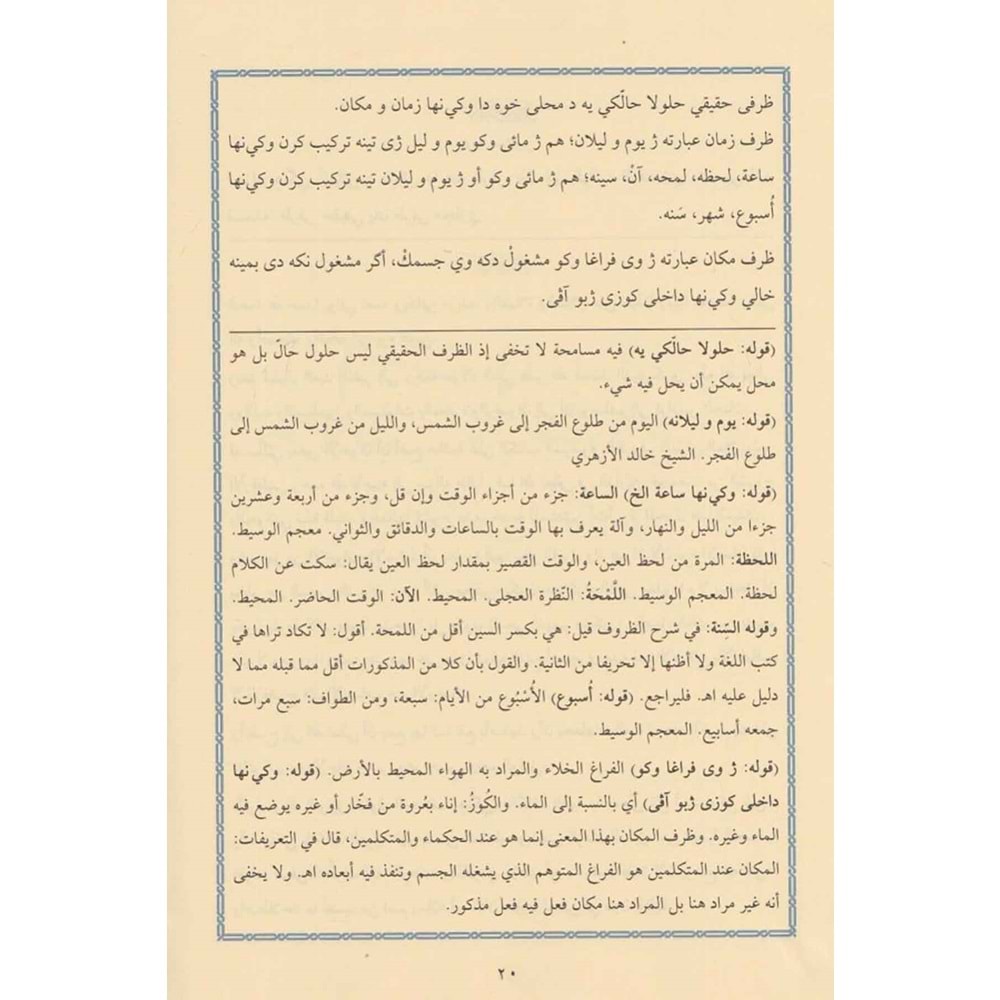 ظرفى حقيقي حلولا حالّكي يه د محلى خوه دا وكي‌نها زمان و مكان.
ظرف زمان عبارته ژ يوم و ليلان؛ هم ژ مائى وكو يوم و ليل ژى تينه تركيب كرن وكي‌نها
ساعة، لحظه، لمحه، آنْ، سينه؛ هم ژ مائى وكو أو ژ يوم و ليلان تينه تركيب كرن وكي‌نها
أُسبوع، شهر، سَنه.
ظرف مكان عبارته ژ وى فراغا وكو مشغولْ دكه وي جسمكْ، أگر مشغول نكه دى بمينه
خالي وكي‌نها داخلى كوزى ژبو آڤى.
(قوله: حلولا حالّكي يه) فيه مسامحة لا تخفى إذ الظرف الحقيقي ليس حلول حالّ بل هو
محل يمكن أن يحل فيه شيء.
(قوله: يوم و ليلانه) اليوم من طلوع الفجر إلى غروب الشمس، والليل من غروب الشمس إلى
طلوع الفجر. الشيخ خالد الأزهري
(قوله: وكي‌نها ساعة الخ) الساعة: جزء من أجزاء الوقت وإن قل، وجزء من أربعة وعشرين
جزءا من الليل والنهار، وآلة يعرف بها الوقت بالساعات والدقائق والثواني. معجم الوسيط.
اللحظة: المرة من لحظ العين، والوقت القصير بمقدار لحظ العين يقال: سكت عن الكلام
لحظة. المعجم الوسيط. اللَّمْحَةُ: النّظرة العجلى. المحيط. الآن: الوقت الحاضر. المحيط.
وقوله السِّنة: في شرح الظروف قيل: هي بكسر السين أقل من اللمحة. أقول: لا تكاد تراها في
كتب اللغة ولا أظنها إلا تحريفا من الثانية. والقول بأن كلا من المذكورات أقل مما قبله مما لا
دليل عليه اهـ. فليراجع. (قوله: أسبوع) الأُسْبُوع من الأيام: سبعة، ومن الطواف: سبع مرات،
جمعه أسابيع. المعجم الوسيط.
(قوله: ژ وى فراغا وكو) الفراغ الخلاء والمراد به الهواء المحيط بالأرض. (قوله: وكي‌نها
داخلى كوزى ژبو آڤى) أي بالنسبة إلى الماء. والكُوزُ: إناء بعُروة من فخّار أو غيره يوضع فيه
الماء وغيره. وظرف المكان بهذا المعنى إنما هو عند الحكماء والمتكلمين، قال في التعريفات:
المكان عند المتكلمين هو الفراغ المتوهم الذي يشغله الجسم وتنفذ فيه أبعاده اهـ. ولا يخفى
أنه غير مراد هنا بل المراد هنا مكان فعل فيه فعل مذكور.
٢٠